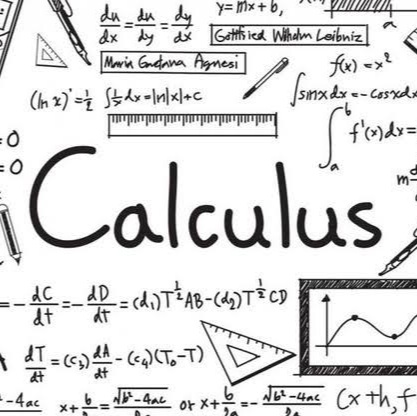 du/dx = du/dy = dy/dx
y = mx + b,
Gottfried Wilhelm Leibniz
Maria Gaetana Agnesi
f(x) = x²
(ln x)' = 1/2
∫ 1/x dx = ln|x| + c
∫ sinx dx = -cosx dx
∫ₐᵇ f'(x) dx =
= 0
= 0
Calculus
= -dC/dt = -dD/dt = (d₁)T^½ AB - (d₂)T^½ CD
dT/dt = (c₃) dA/dt - (c₄)(T₀ - T)
-4ac
x + b/2a = √b² - 4ac/2a or x + b/2a = -√b² - 4ac/2a
(x + h, f